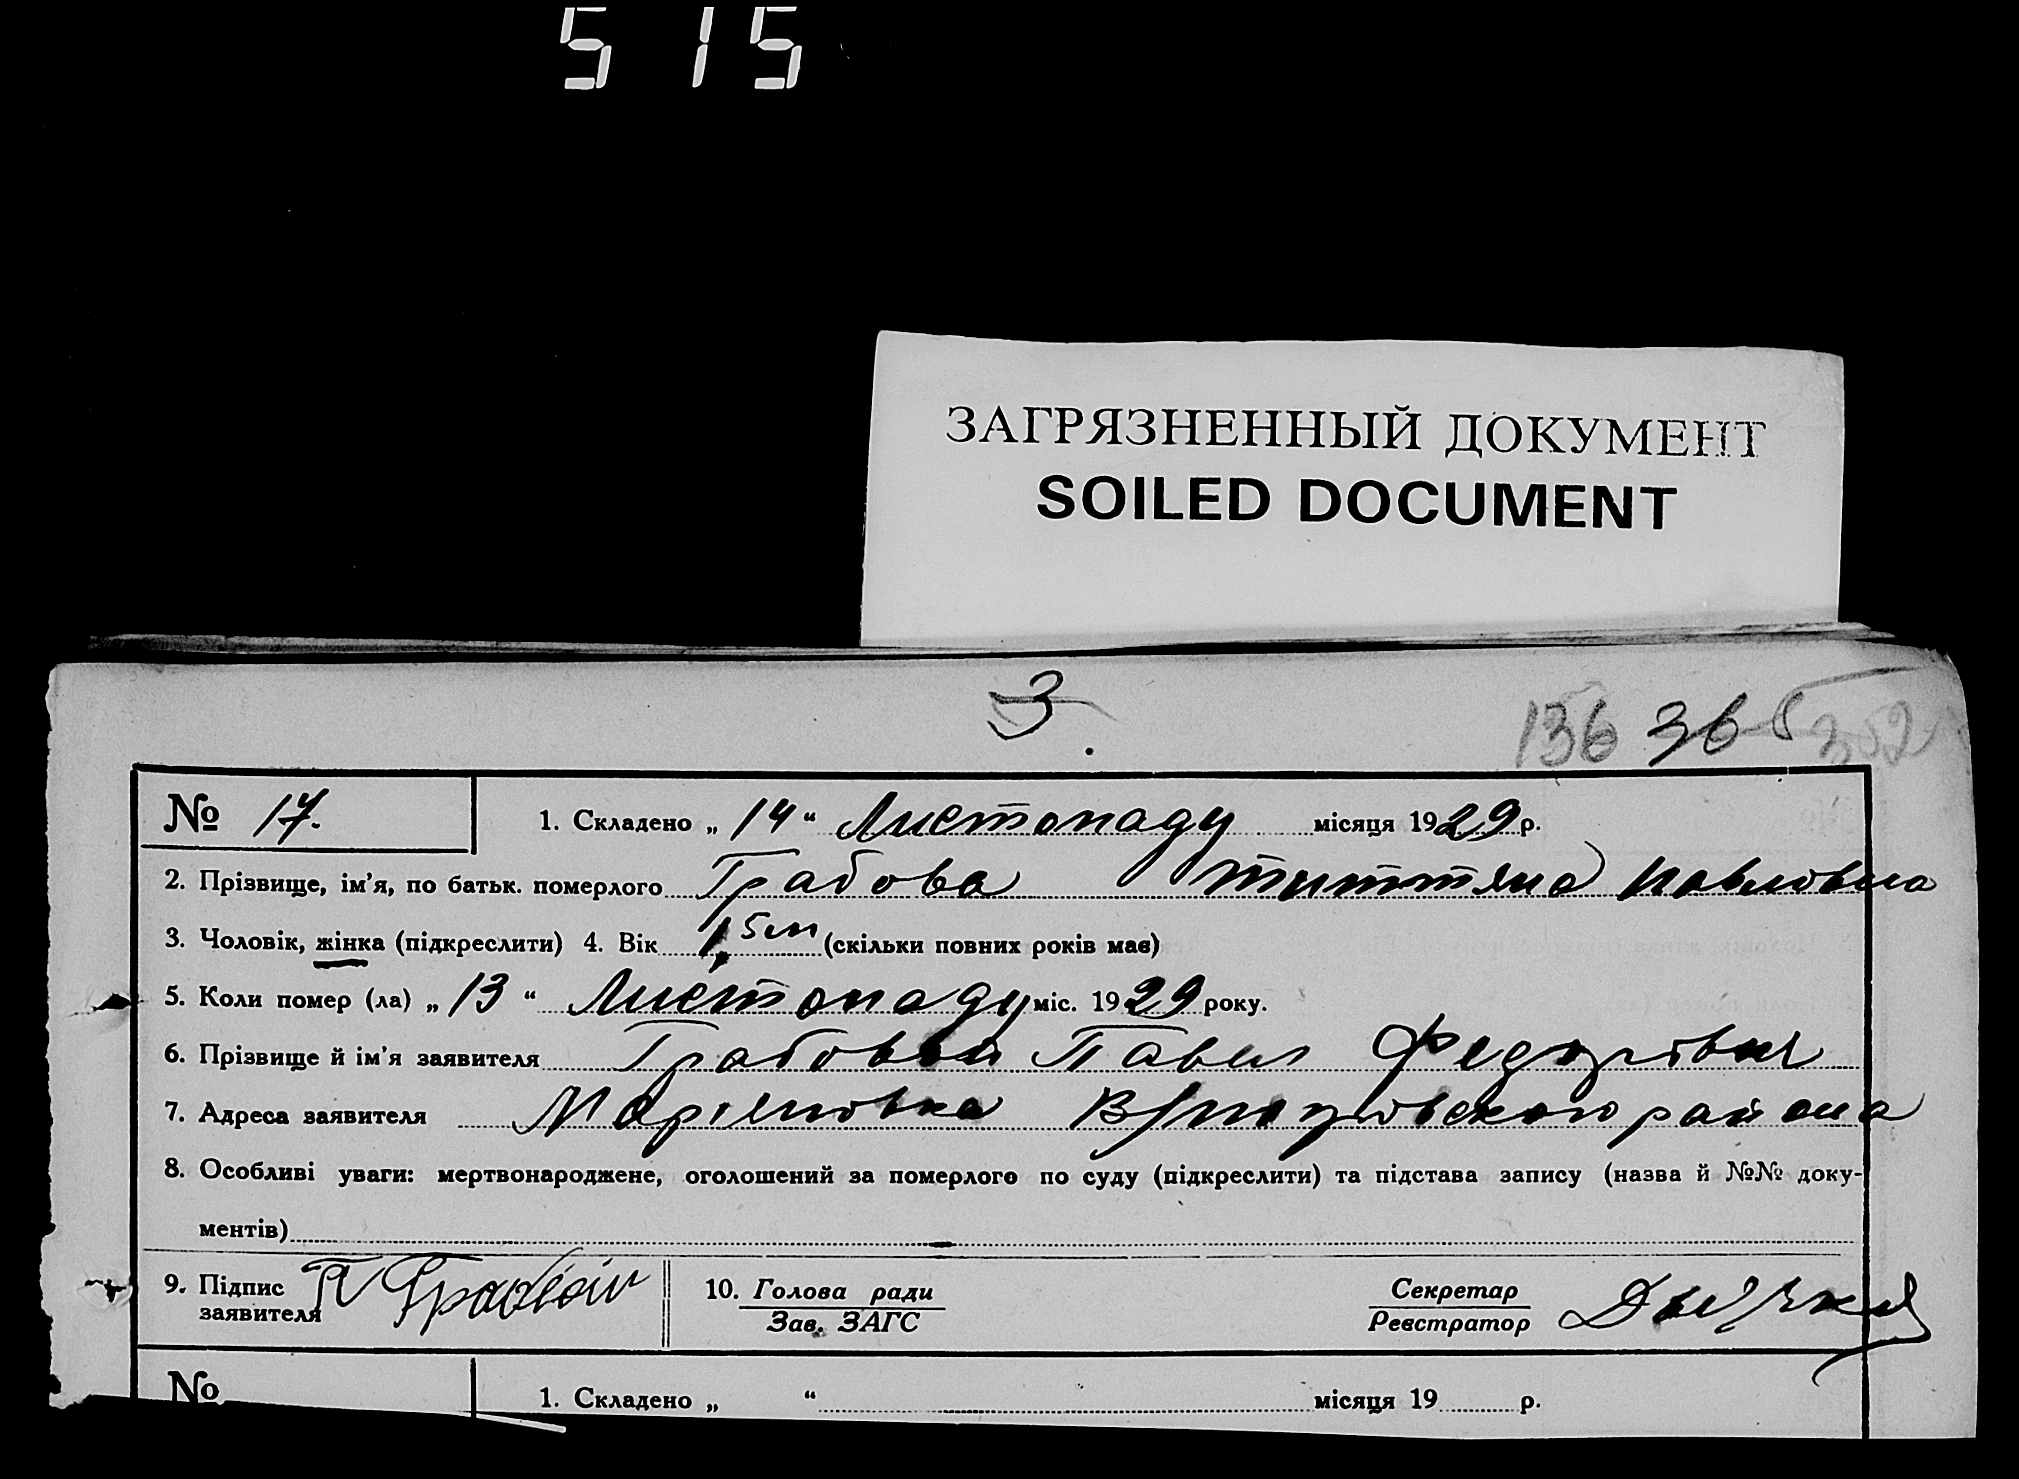 515
ЗАГРЯЗНЕННЫЙ ДОКУМЕНТ
SOILED DOCUMENT
3
136 36 352
№ 17. 1. Складено „ 14 “ Листопаду місяця 1929 р.
2. Прізвище, ім'я, по батьк. померлого Грабова Татяна Павловна
3. Чоловік, жінка (підкреслити) 4. Вік 1,5 м (скільки повних років має)
5. Коли помер (ла) „ 13 “ Листопаду міс. 1929 року.
6. Прізвище й ім'я заявителя Грабовый Павел Федорович
7. Адреса заявителя Маріяновка району
8. Особливі уваги: мертвонароджене, оголошений за померлого по суду (підкреслити) та підстава запису (назва й №№ доку-
ментів)
9. Підпис П Грабовий 10. Голова ради Секретар
заявителя Зав. ЗАГС Реєстратор
№ 1. Складено „ “ місяця 19 р.